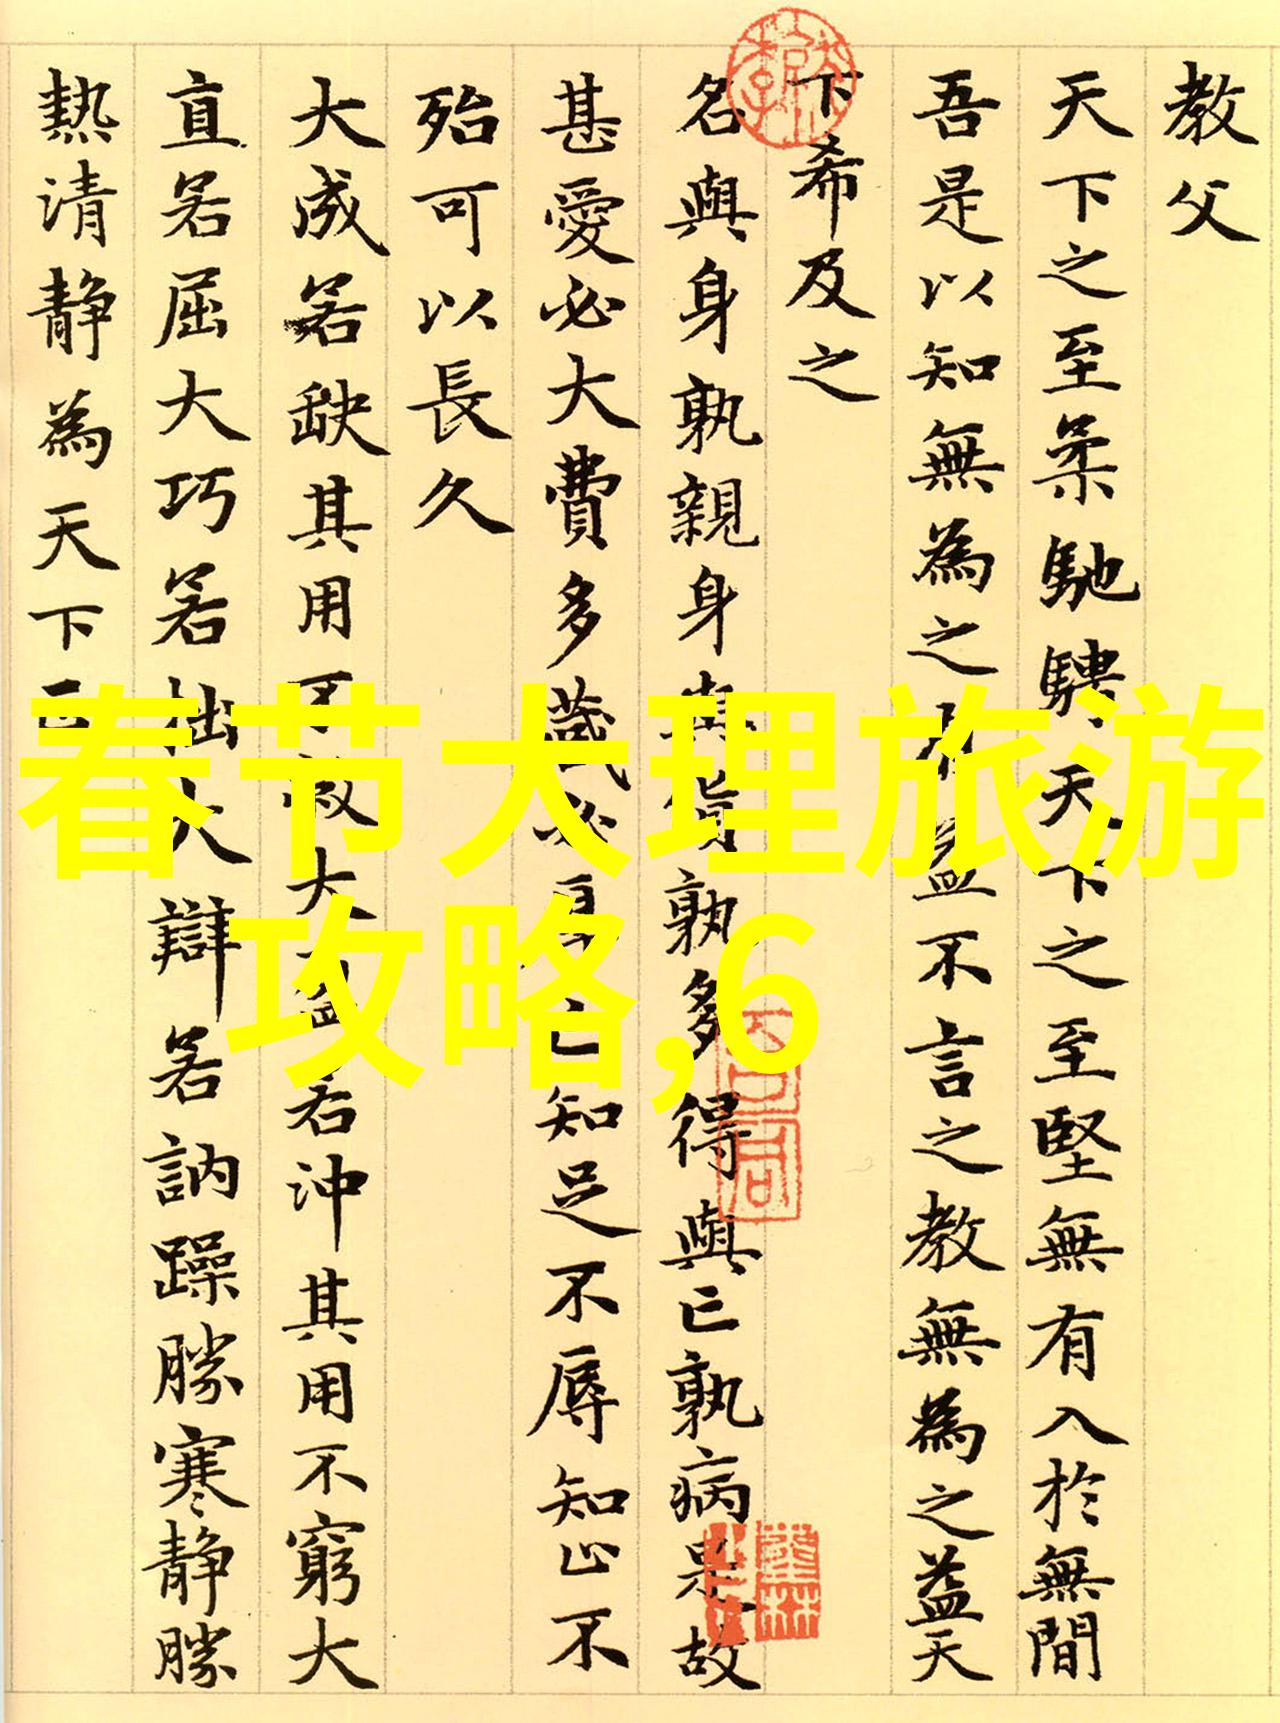 教父
天下之至柔馳騁天下之至堅無有入於無間
吾是以知無為之有益不言之教無為之益天
下希及之
名與身孰親身與貨孰多得與亡孰病是故
甚愛必大費多藏必厚亡知足不辱知止不
殆可以長久
大成若缺其用不敝大盈若沖其用不窮大
直若屈大巧若拙大辯若訥躁勝寒靜勝
熱清靜為天下正
春节大理旅游
攻略,6